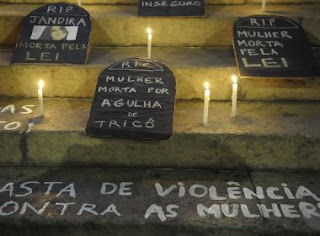 INSEGURO
RIP
JANDIRA
MORTA PELA
LEI
RIP
MULHER
MORTA PELA
LEI
RIP
MULHER
MORTA POR
AGULHA
DE
TRICÔ
ASTA DE VIOLÊNCIA
ONTRA AS MULHER